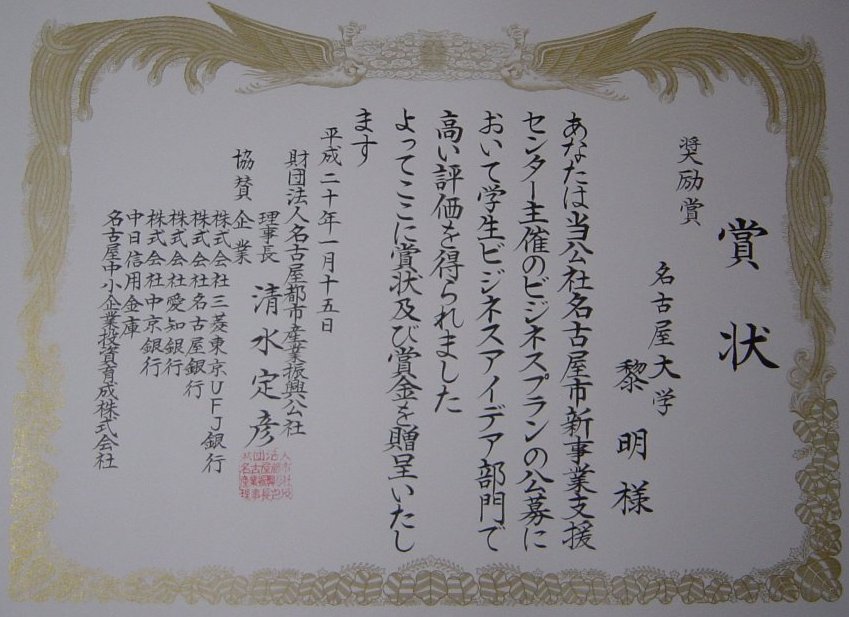 賞状
奨励賞
名古屋大学
黎明様
あなたは当公社名古屋市新事業支援
センター主催のビジネスプランの公募に
おいて学生ビジネスアイデア部門で
高い評価を得られました
よってここに賞状及び賞金を贈呈いたし
ます
平成二十年一月十五日
財団法人名古屋都市産業振興公社
理事長 清水定彦
協賛企業
株式会社三菱東京UFJ銀行
株式会社名古屋銀行
株式会社愛知銀行
株式会社中京銀行
中日信用金庫
名古屋中小企業投資育成株式会社